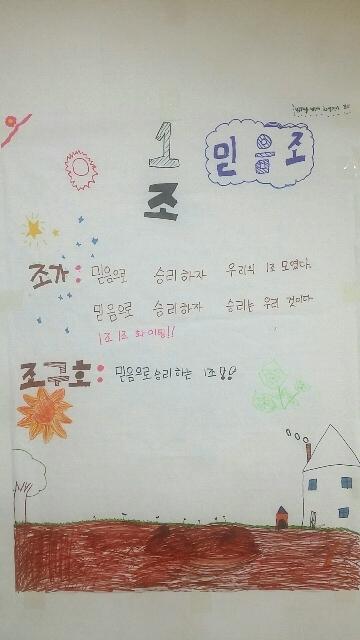 1
조
믿음조
조가: 믿음으로 승리하자 우리의 1조 모였다.
믿음으로 승리하자 승리는 우리 것이다
1조 1조 화이팅!!
조구호: 믿음으로 승리하는 1조